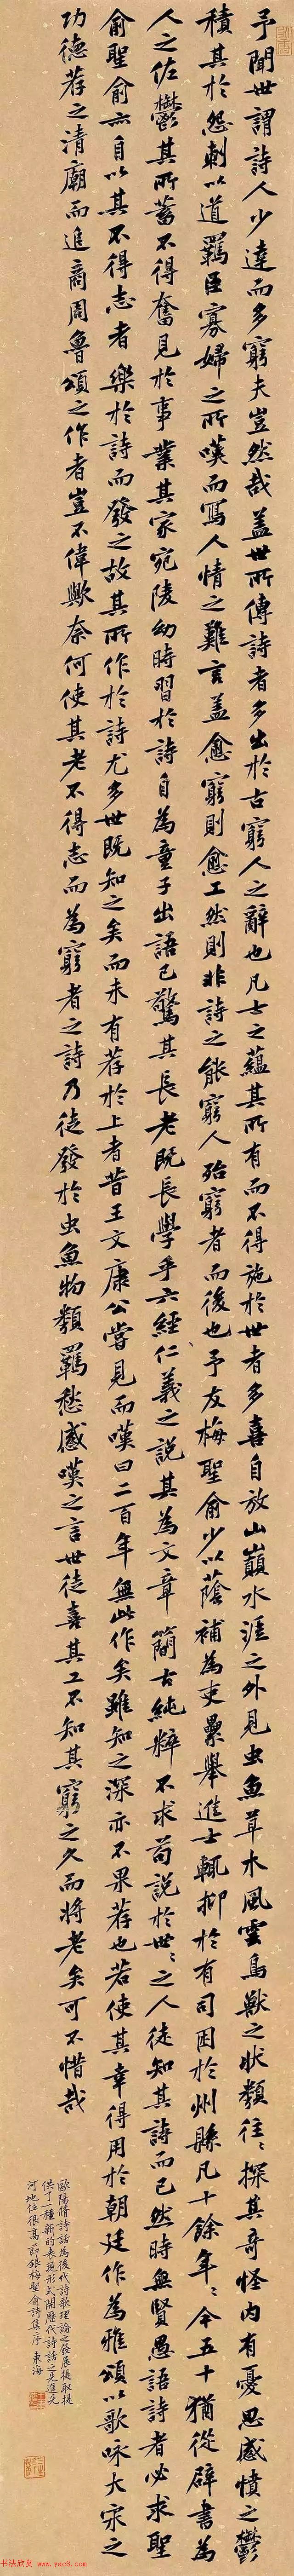 予聞世謂詩人少達而多窮夫豈然哉蓋世所傳詩者多出於古窮人之辭也凡士之蘊其所有而不得施於世者多喜自放山巔水涯之外見虫魚草木風雲鳥獸之狀類往〻探其奇怪內有憂思感憤之鬱
積其於怨刺以道羈臣寡婦之所嘆而寫人情之難言蓋愈窮則愈工然則非詩之能窮人殆窮者而後也予友梅聖俞少以蔭補為吏累舉進士輒抑於有司困於州縣凡十餘年〻今五十猶從辟書為
人之佐鬱其所蓄不得奮見於事業其家宛陵幼時習於詩自為童子出語已驚其長老既長學乎六經仁義之說其為文章簡古純粹不求苟說於世〻之人徒知其詩而已然時無賢愚語詩者必求聖
俞聖俞亦自以其不得志者樂於詩而發之故其所作於詩尤多世既知之矣而未有荐於上者昔王文康公嘗見而嘆曰二百年無此作矣雖知之深亦不果荐也若使其幸得用於朝廷作為雅頌以歌咏大宋之
功德荐之清廟而進商周魯頌之作者豈不偉歟奈何使其老不得志而為窮者之詩乃徒發於虫魚物類羈愁感嘆之言世徒喜其工不知其窮之久而將老矣可不惜哉
歐陽脩詩話為後代詩歌理論之發展提取提
供了一種新的表現形式開歷代詩話之先進先
河地位很高節錄梅聖俞詩集序 東海
书法欣赏 www.yac8.com